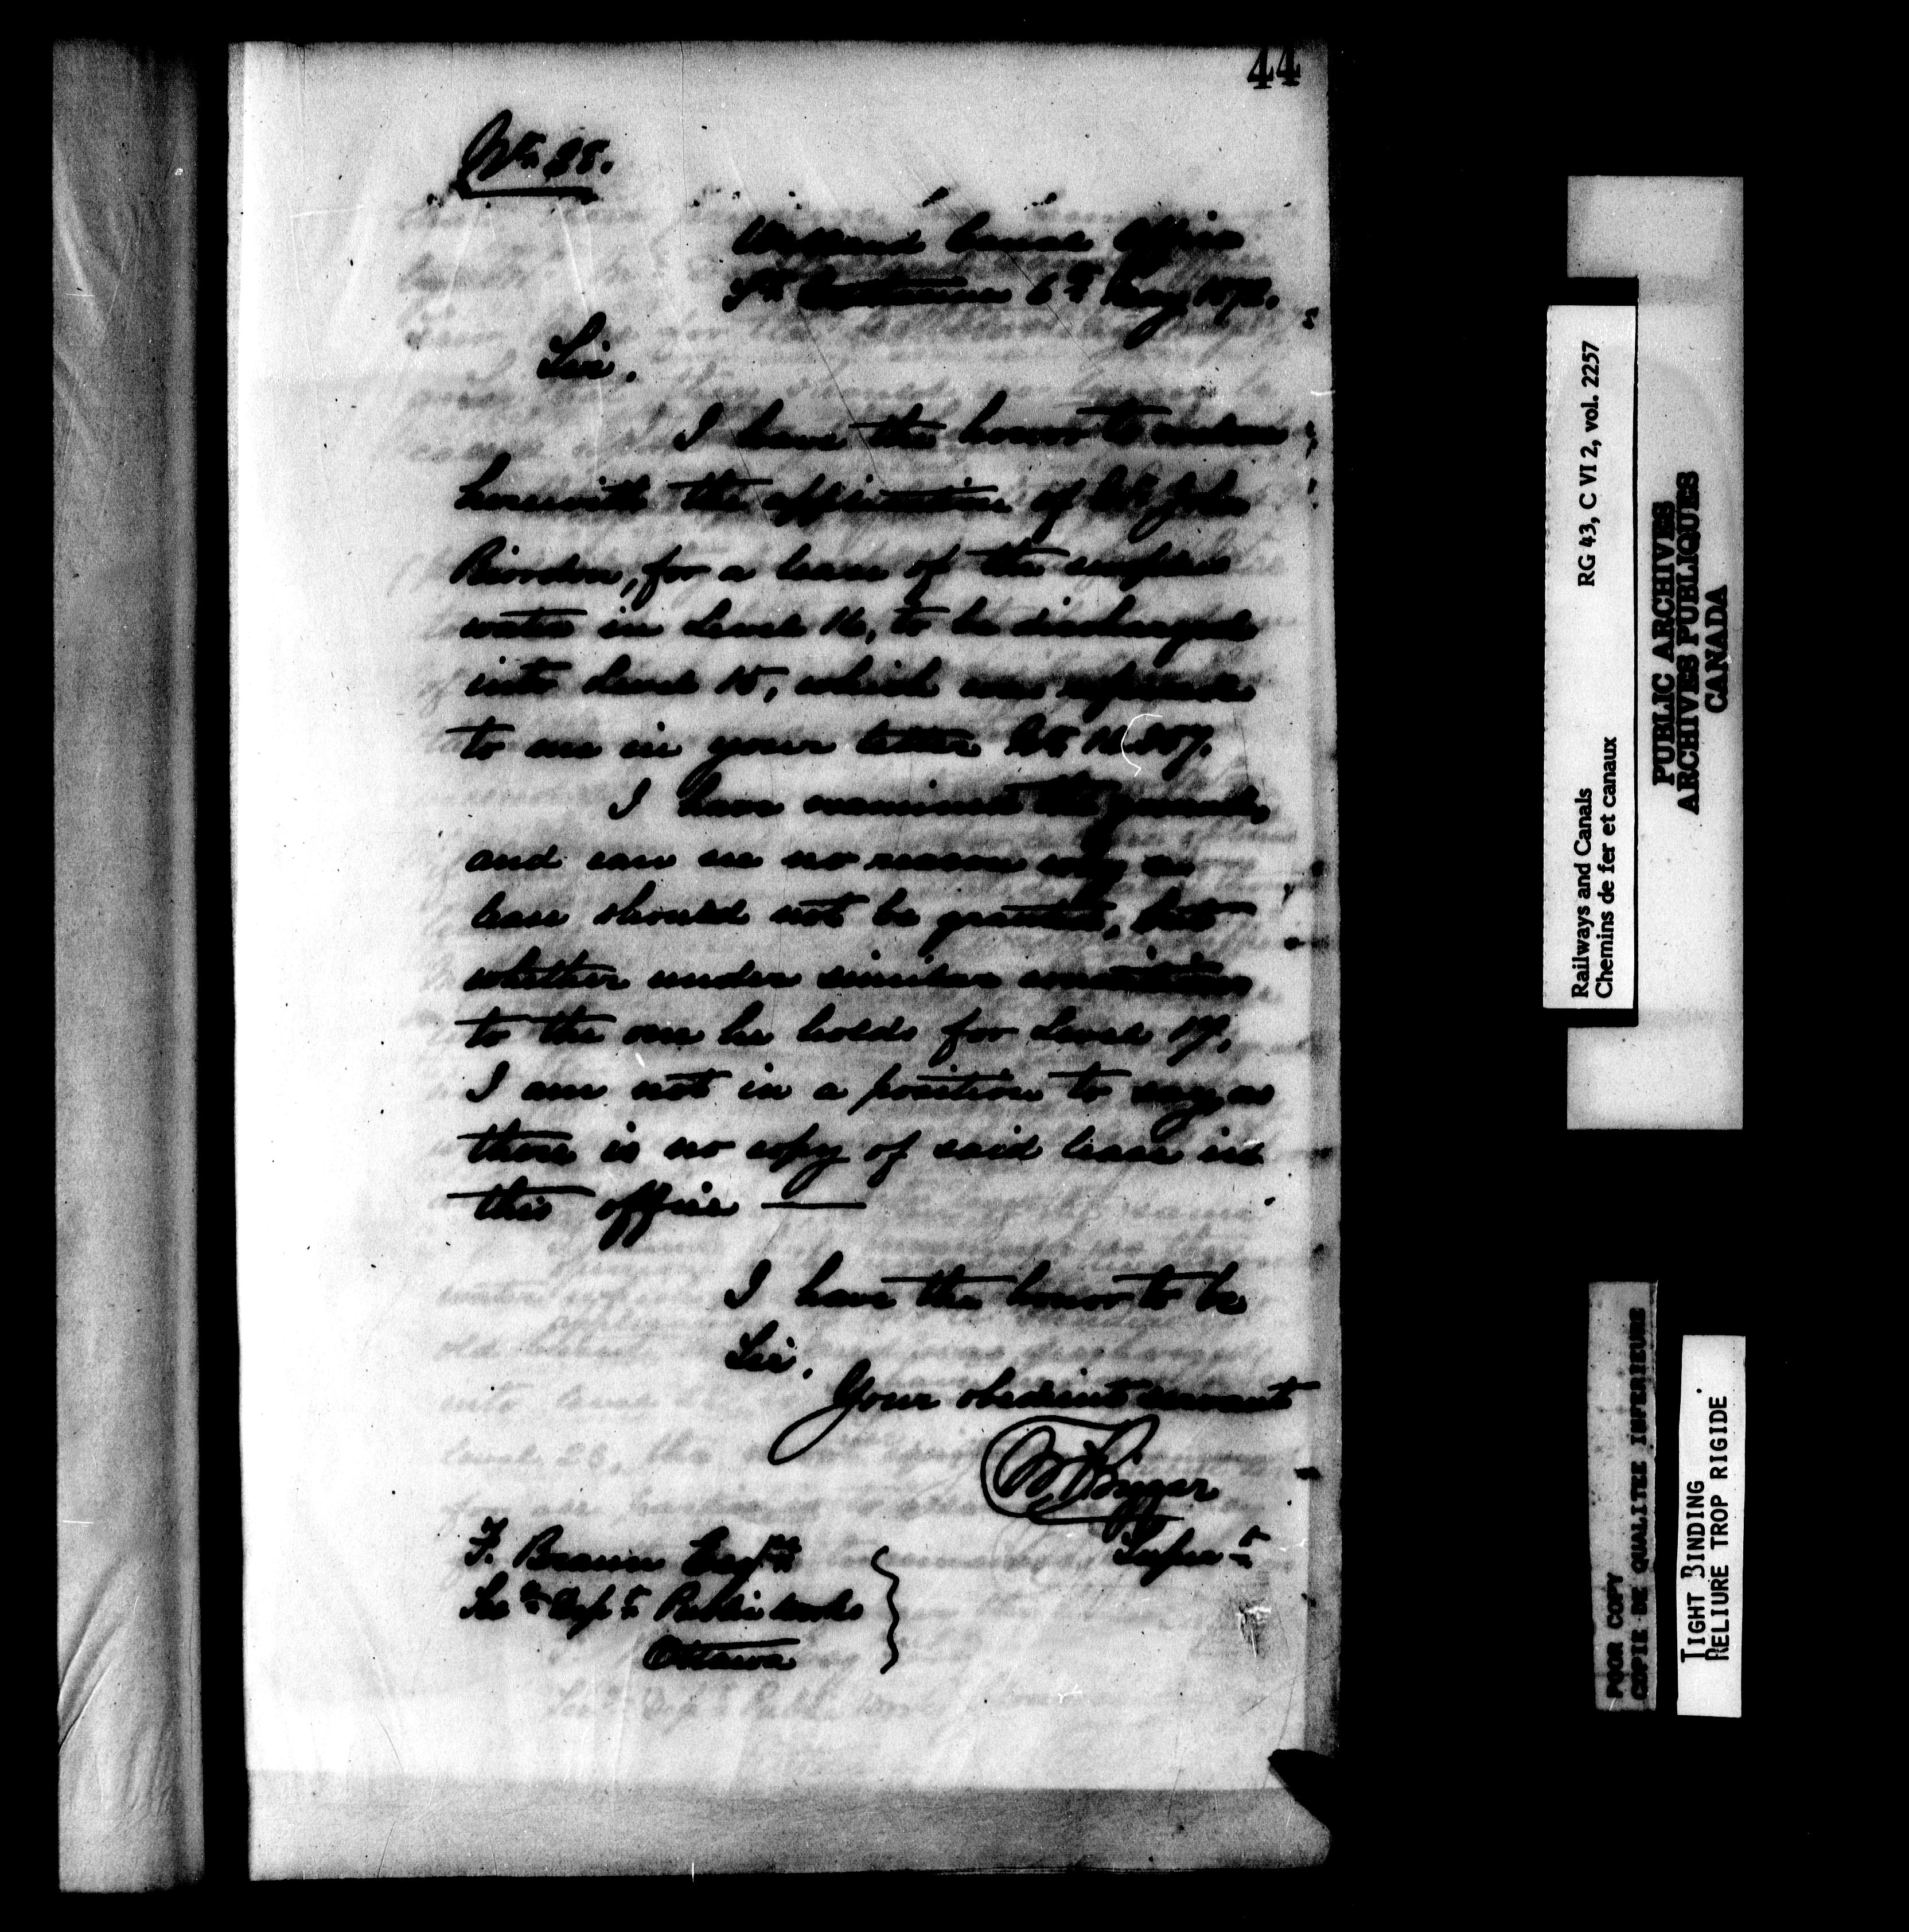 44
No. 25.
Welland Canal Office
St. Catharines 6th May 1872.
Sir.
I have the honor to enclose
herewith the application of Mr John
Riordon, for a lease of the surplus
water in Level 16, to be discharged
into Level 15, which was referred
to me in your letter No.
I have examined the ground,
and can see no reason why a
lease should not be granted, but
whether under similar conditions
to the one he holds for Level 17,
I am not in a position to say, as
there is no copy of said lease in
this office —
I have the honor to be
Sir.
Your obedient servant
Bizgar
Supert
F. Braun Esqre
Secy Dept Public Works
Ottawa
Railways and Canals RG 43, C VI 2, vol. 2257
Chemins de fer et canaux
PUBLIC ARCHIVES
ARCHIVES PUBLIQUES
CANADA
POOR COPY
COPIE DE QUALITEE INFERIEURE
TIGHT BINDING
RELIURE TROP RIGIDE